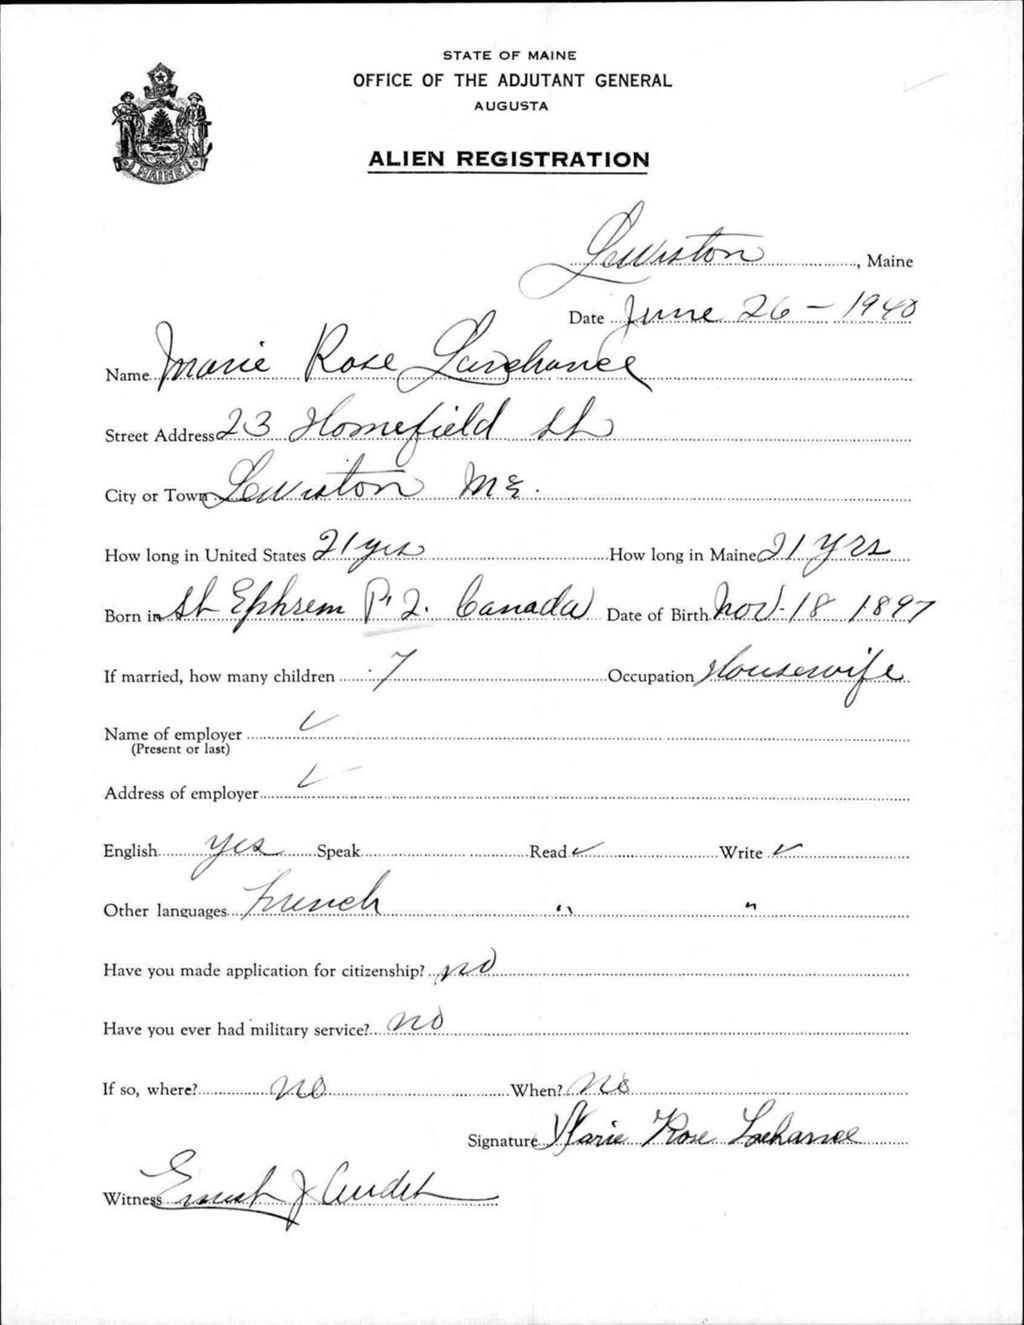 STATE OF MAINE
OFFICE OF THE ADJUTANT GENERAL
AUGUSTA
ALIEN REGISTRATION
MAINE
Lewiston, Maine
Date June 26 - 1940
Name Marie Rose Lachance
Street Address 23 Homefield St
City or Town Lewiston Me.
How long in United States 21 yrs How long in Maine 21 Yrs
Born in St Ephrem P.Q. Canada Date of Birth Nov. 18 1897
If married, how many children 7 Occupation Housewife
Name of employer ✓
(Present or last)
Address of employer ✓
English yes Speak Read ✓ Write ✓
Other languages French " "
Have you made application for citizenship? no
Have you ever had military service? no
If so, where? no When? No
Signature Marie Rose Lachance
Witness Ernest J Audet